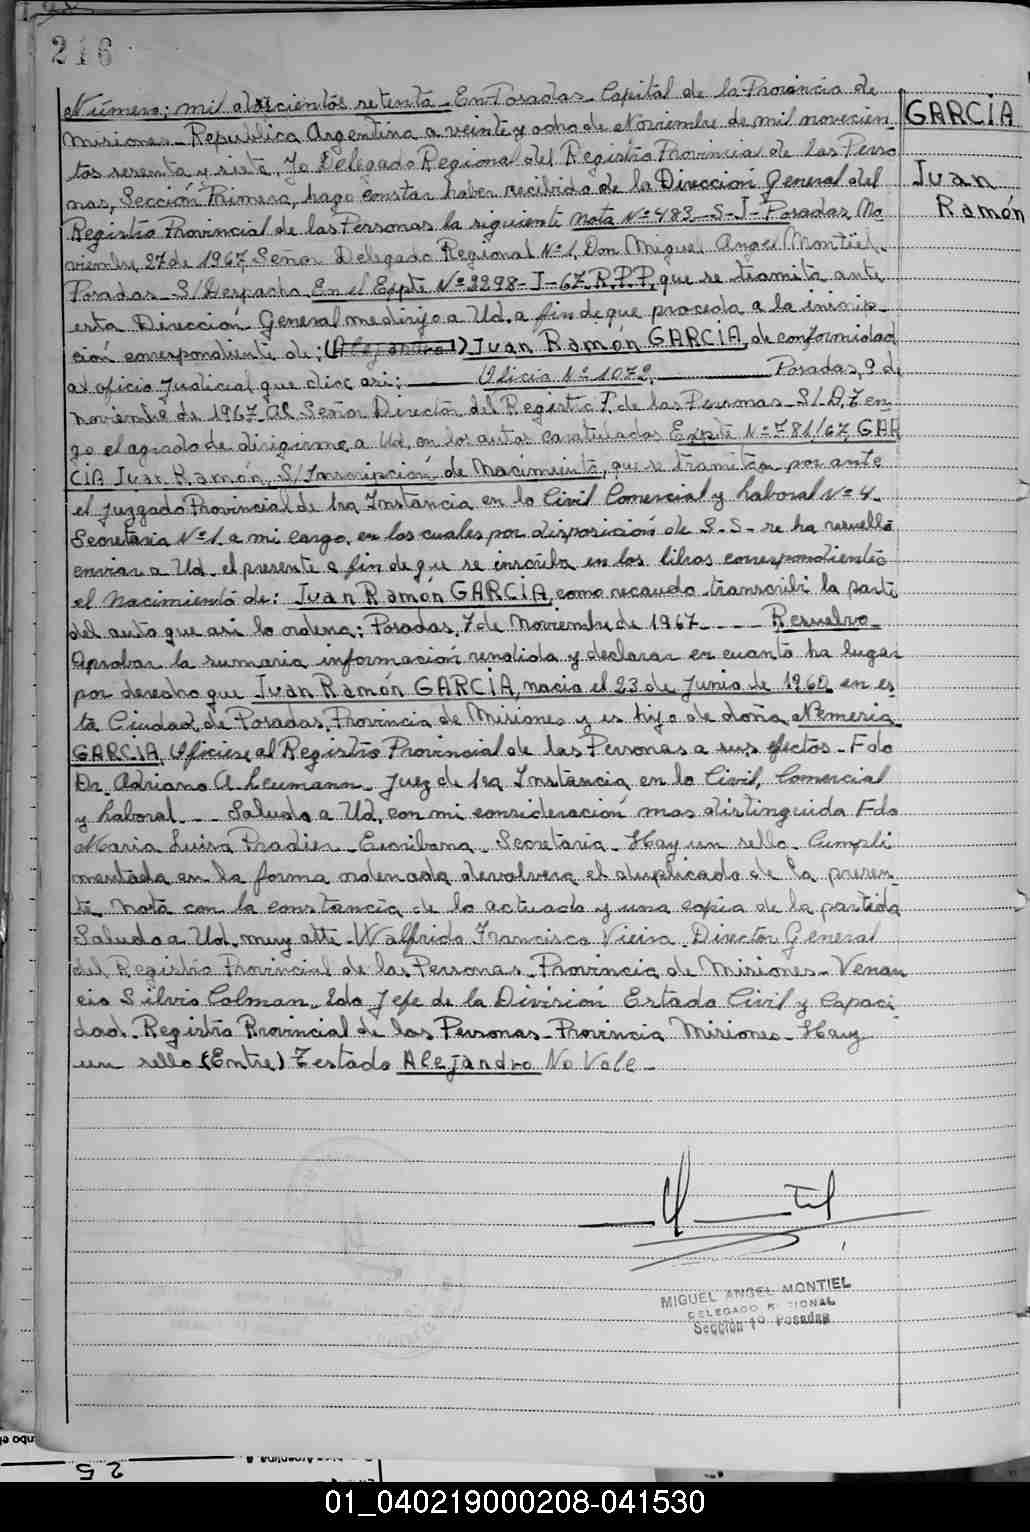 216
Número; mil doscientos setenta - En Posadas - Capital de la Provincia de
Misiones - República Argentina a veinte y ocho de Noviembre de mil novecien-
tos sesenta y siete, Yo Delegado Regional del Registro Provincial de las Perso
nas, Sección Primera, hago constar haber recibido de la Dirección General del
Registro Provincial de las Personas la siguiente nota Nº 483 - S - J - Posadas, No
viembre 27 de 1967, Señor Delegado Regional Nº 1, Don Miguel Angel Montiel.
Posadas - S/Despacho. En el Expte Nº 2298 - J - 67, R.P.P, que se tramita ante
esta Dirección General me dirijo a Ud. a fin de que proceda a la inscrip-
ción correspondiente de; (Alejandro) Juan Ramón GARCIA, de conformidad
al oficio Judicial que dice asi; Oficio Nº 1072 Posadas, 9 de
noviembre de 1967. Al Señor Director del Registro P. de las Personas - S/D, Ten-
go el agrado de dirigirme a Ud, en los autos caratulados Expte Nº 781/67, GAR
CIA Juan Ramón, S/Inscripción de Nacimiento, que se tramita por ante
el Juzgado Provincial de 1ra Instancia en lo Civil Comercial y Laboral Nº 4.
Secretaria Nº 1, a mi cargo, en los cuales por disposición de S.S - se ha resuelto
enviar a Ud. el presente a fin de que se inscriba en los libros correspondientes
el Nacimiento de: Juan Ramón GARCIA, como recaudo transcribi la parte
del auto que asi lo ordena; Posadas, 7 de Noviembre de 1967 - - - - Resuelvo -
Aprobar la sumaria información rendida y declarar en cuanto ha lugar
por derecho que Juan Ramón GARCIA, nacio el 23 de Junio de 1960 en es-
ta Ciudad de Posadas, Provincia de Misiones y es hijo de doña Nemesia
GARCIA, Oficiese al Registro Provincial de las Personas a sus efectos - Fdo
Dr. Adriano A. Leumann - Juez de 1ra Instancia en lo Civil, Comercial
y Laboral - - - Saludo a Ud, con mi consideración mas distinguida Fdo
Maria Luisa Pradier - Escribana - Secretaria - Hay un sello. Cumpli
mentada en la forma ordenada devolvera el duplicado de la presen-
te nota con la constancia de lo actuado y una copia de la partida
Saludo a Ud. muy atte. Walfrido Francisco Vieira. Director General
del Registro Provincial de las Personas - Provincia de Misiones - Venan
cio Silvio Colman - 2do Jefe de la División Estado Civil y Capaci
dad. Registro Provincial de las Personas - Provincia Misiones - Hay
un sello (Entre) Testado Alejandro No Vale -
GARCIA
Juan
Ramón
MIGUEL ANGEL MONTIEL
DELEGADO REGIONAL
Sección 1º Posadas
25
01_040219000208-041530